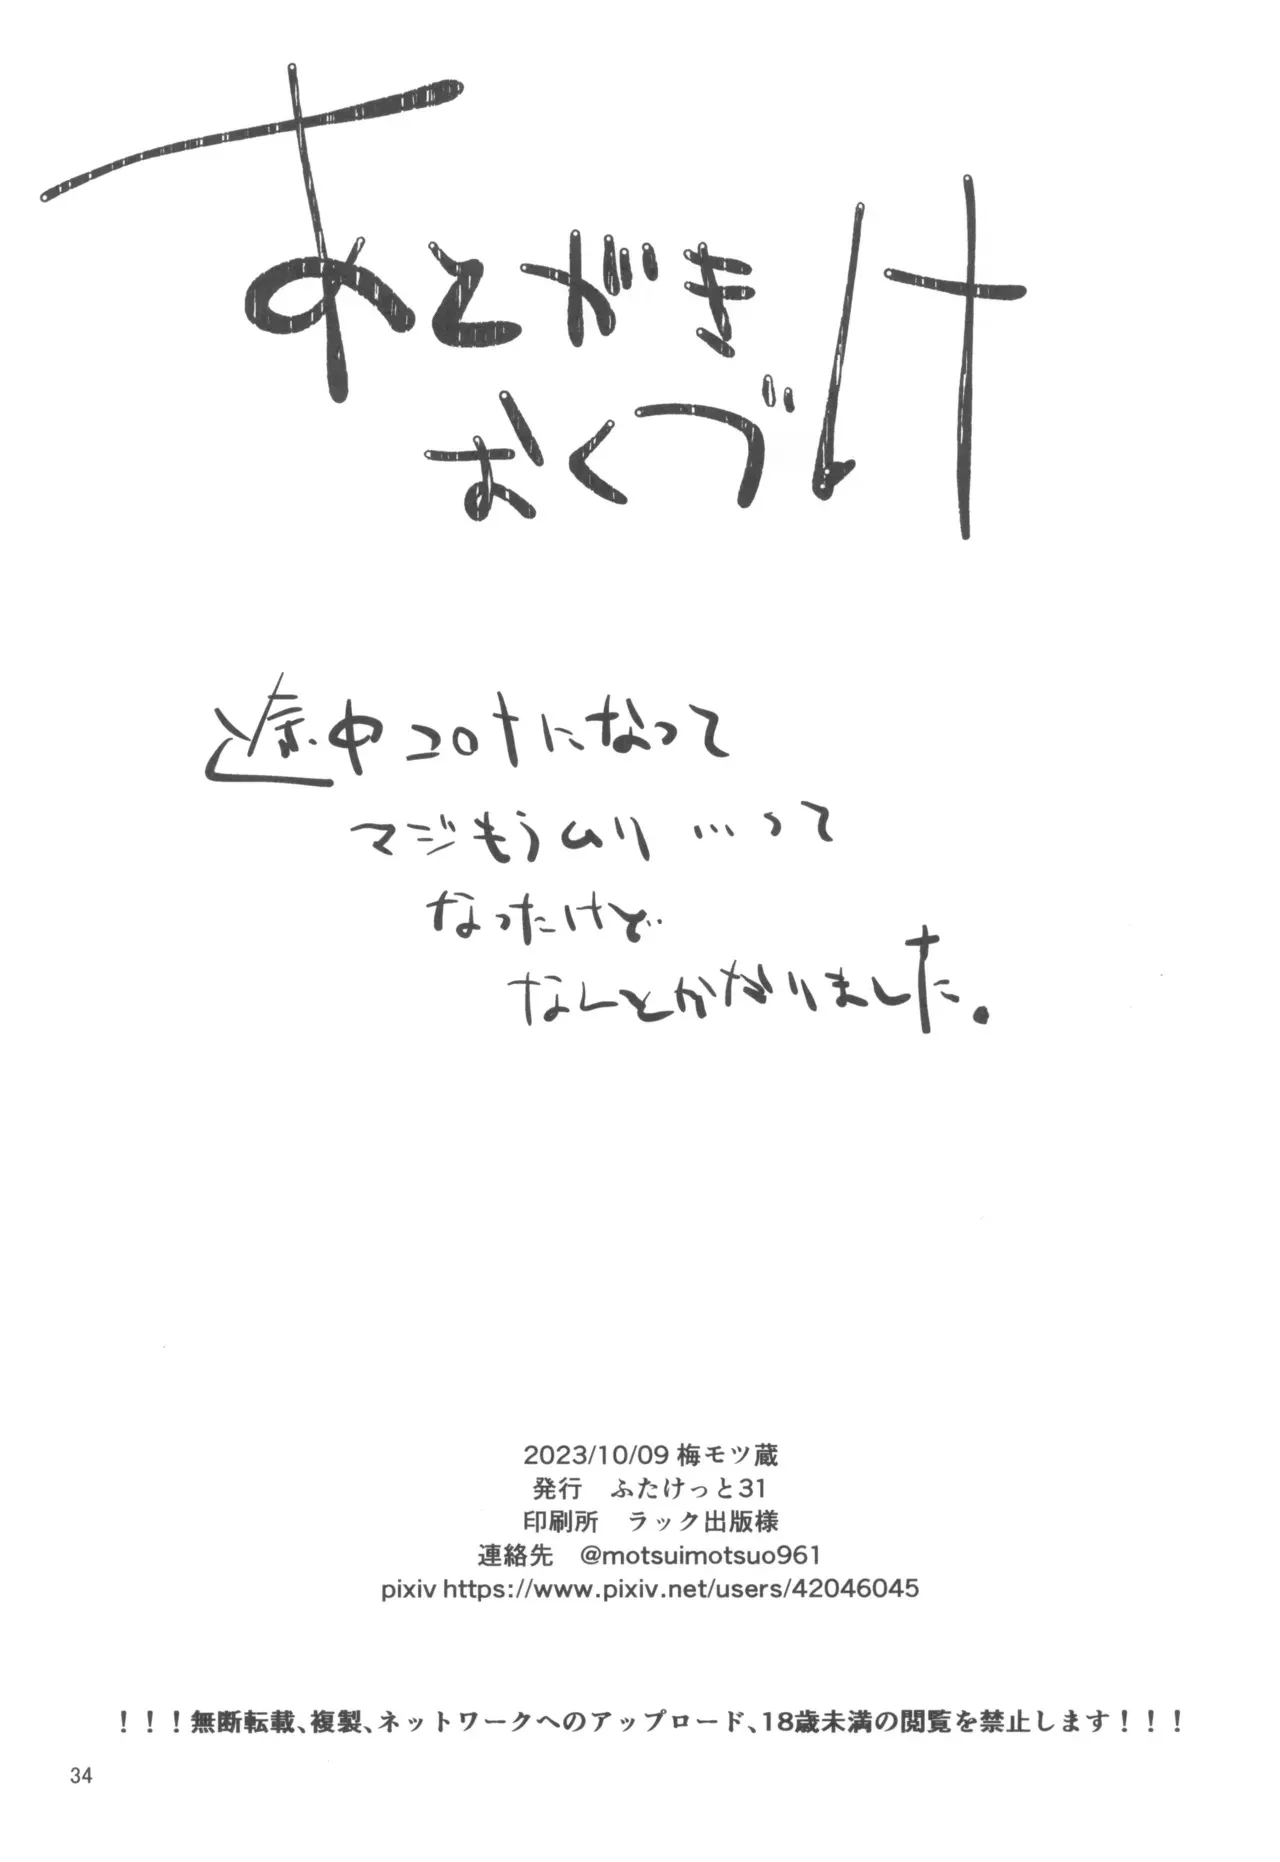 あとがき
おくづけ
途中コロナになって
マジもうムリ…って
なったけど
なんとかなりました。
2023/10/09 梅モツ蔵
発行　ふたけっと31
印刷所　ラック出版様
連絡先　@motsuimotsuo961
pixiv https://www.pixiv.net/users/42046045
！！！無断転載、複製、ネットワークへのアップロード、18歳未満の閲覧を禁止します！！！
34